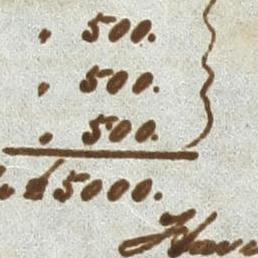 " 500.
" 500.
" 500.
5000.